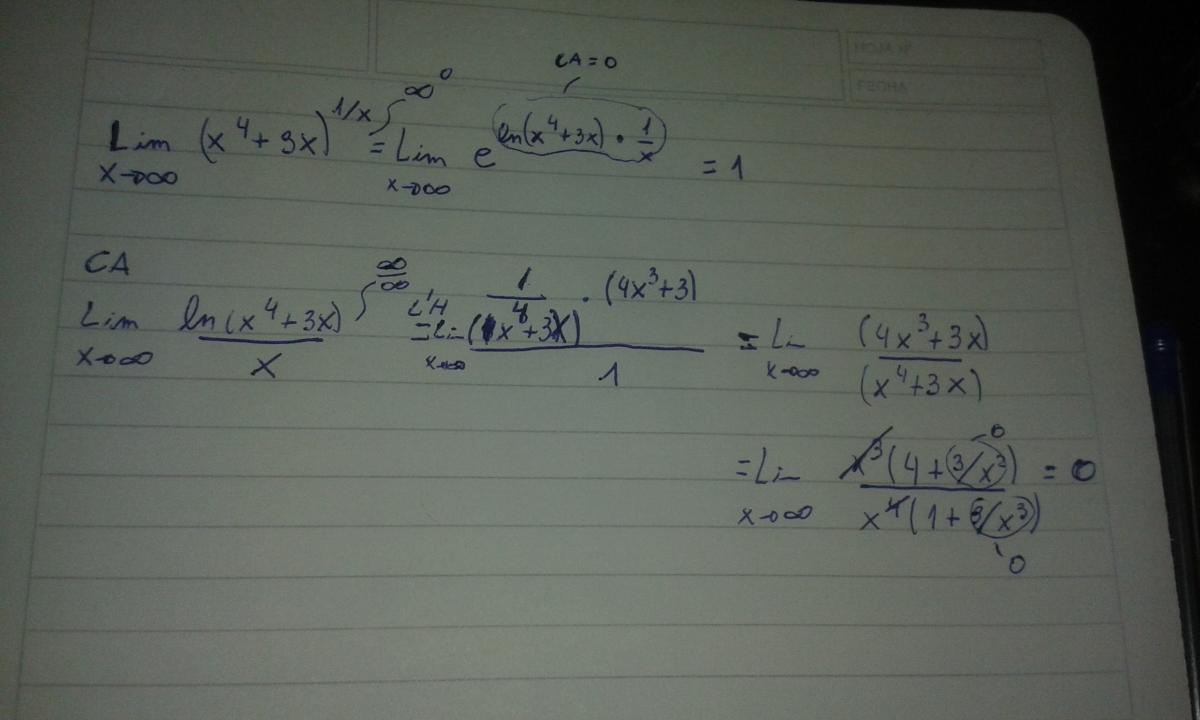 HOJA Nº
FECHA
CA = 0
Lim (x⁴ + 3x)^(1/x) ∞⁰ = Lim e^(ln(x⁴+3x) · 1/x) = 1
x→∞ x→∞
CA
Lim ln(x⁴+3x)/x ∞/∞ L'H = Lim (1/(x⁴+3x) · (4x³+3))/1 = Lim (4x³+3x)/(x⁴+3x)
x→∞ x→∞ x→∞
= Lim x³(4 + 3/x³)/x⁴(1 + 3/x³) = 0
x→∞
0
0